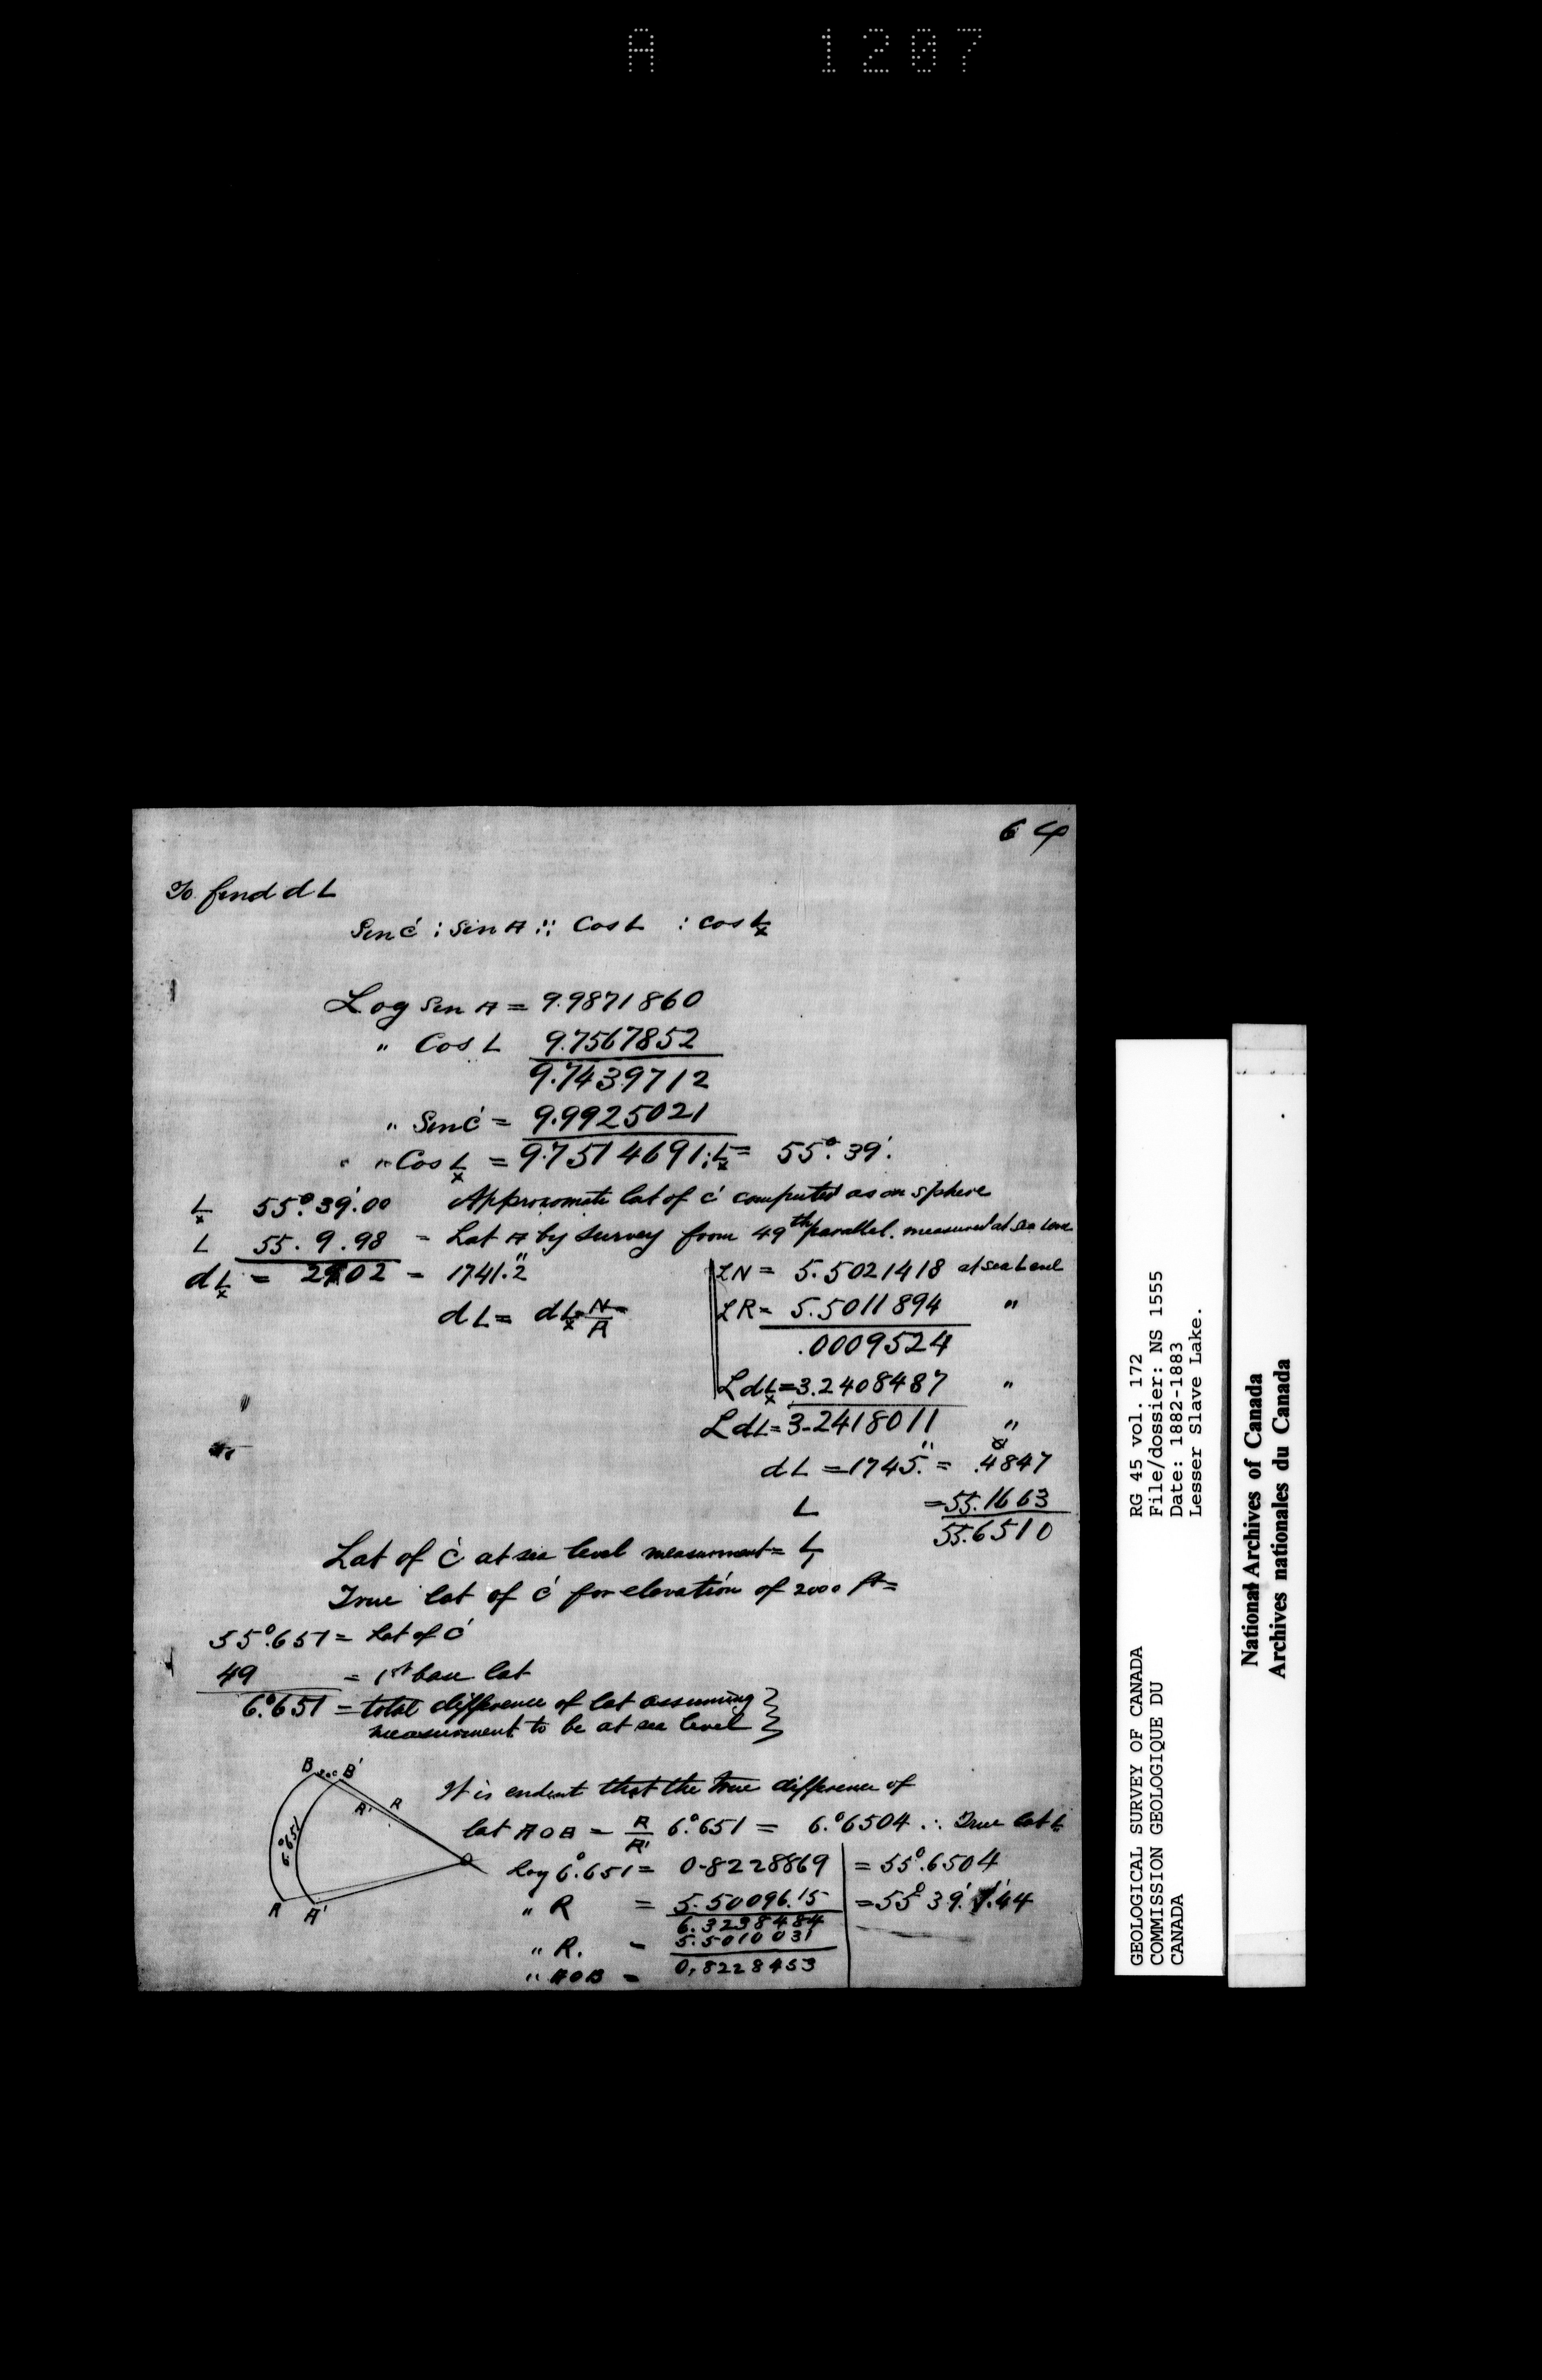 A 1207
64
To find dL
Sin C' : Sin A :: Cos L : cos Lx
Log Sin A = 9.9871860
" Cos L 9.7567852
9.7439712
" Sin C' = 9.9925021
" " Cos Lx = 9.7514691 ∴ Lx = 55°.39'.
Lx 55°.39'.00 Approximate lat of C' computed as on sphere
L 55. 9.98 = Lat A by survey from 49th parallel. measured at sea level
dLx = 29.02 = 1741".2
dL = dLx N/R
LN = 5.5021418 at sea level
LR = 5.5011894 "
.0009524
L dLx = 3.2408487 "
L dL = 3.2418011 "
dL = 1745". = .4847
L = 55.1663
55.6510
Lat of C' at sea level measurment = L,
True lat of C' for elevation of 2000 ft =
55°.651 = Lat of C'
49 = 1st base lat
6°.651 = total difference of lat assuming
measurment to be at sea level }
B B'
R' R
6°.651
O
A A'
It is evident that the true difference of
lat AOB = R/R' 6°.651 = 6.°6504 ∴ True lat
log 6°.651 = 0.8228869 = 55°.6504
" R = 5.5009615 = 55° 39'.1'.44
6.3238484
" R. = 5.5010031
" AOB = 0.8228453
GEOLOGICAL SURVEY OF CANADA
COMMISSION GEOLOGIQUE DU
CANADA
RG 45 vol. 172
File/dossier: NS 1555
Date: 1882-1883
Lesser Slave Lake.
National Archives of Canada
Archives nationales du Canada